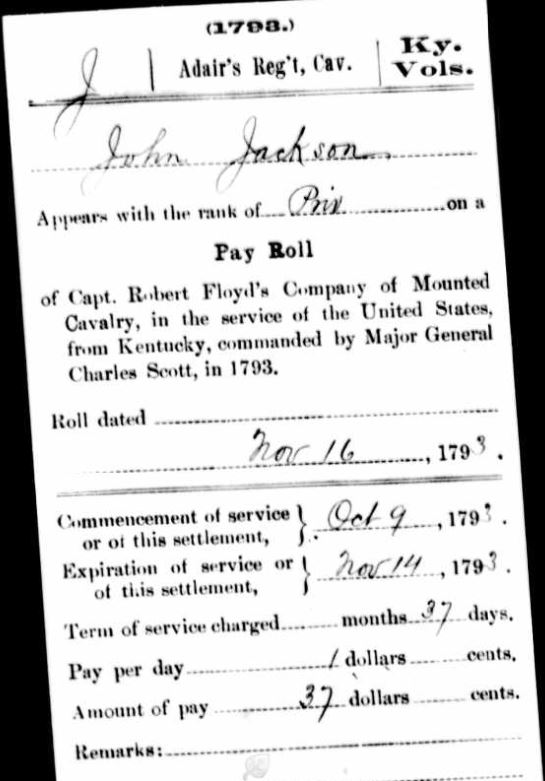 (1793.)
J | Adair's Reg't, Cav. | Ky. Vols.
John Jackson
Appears with the rank of Priv. on a
Pay Roll
of Capt. Robert Floyd's Company of Mounted
Cavalry, in the service of the United States,
from Kentucky, commanded by Major General
Charles Scott, in 1793.
Roll dated
Nov 16, 1793.
Commencement of service
or of this settlement, } Oct 9, 1793.
Expiration of service or
of this settlement, } Nov 14, 1793.
Term of service charged months 37 days.
Pay per day 1 dollars cents.
Amount of pay 37 dollars cents.
Remarks: